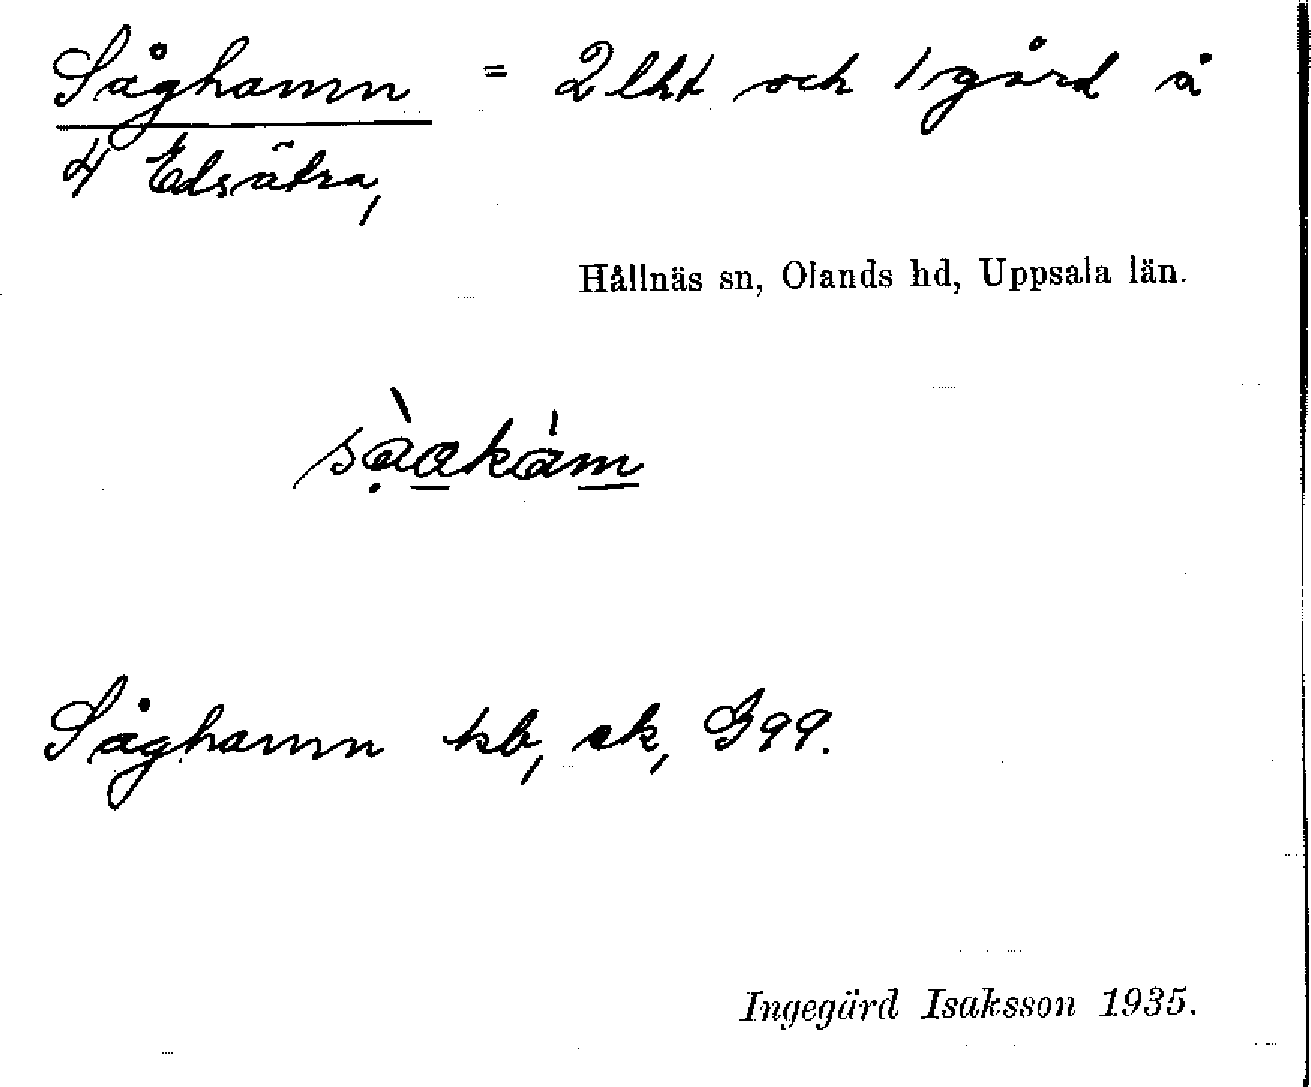 Såghamn = 2 lht och 1 gård å
4 Edsätra,
Hållnäs sn, Olands hd, Uppsala län.
Såghamn kb, ek, G99.
Ingegärd Isaksson 1935.